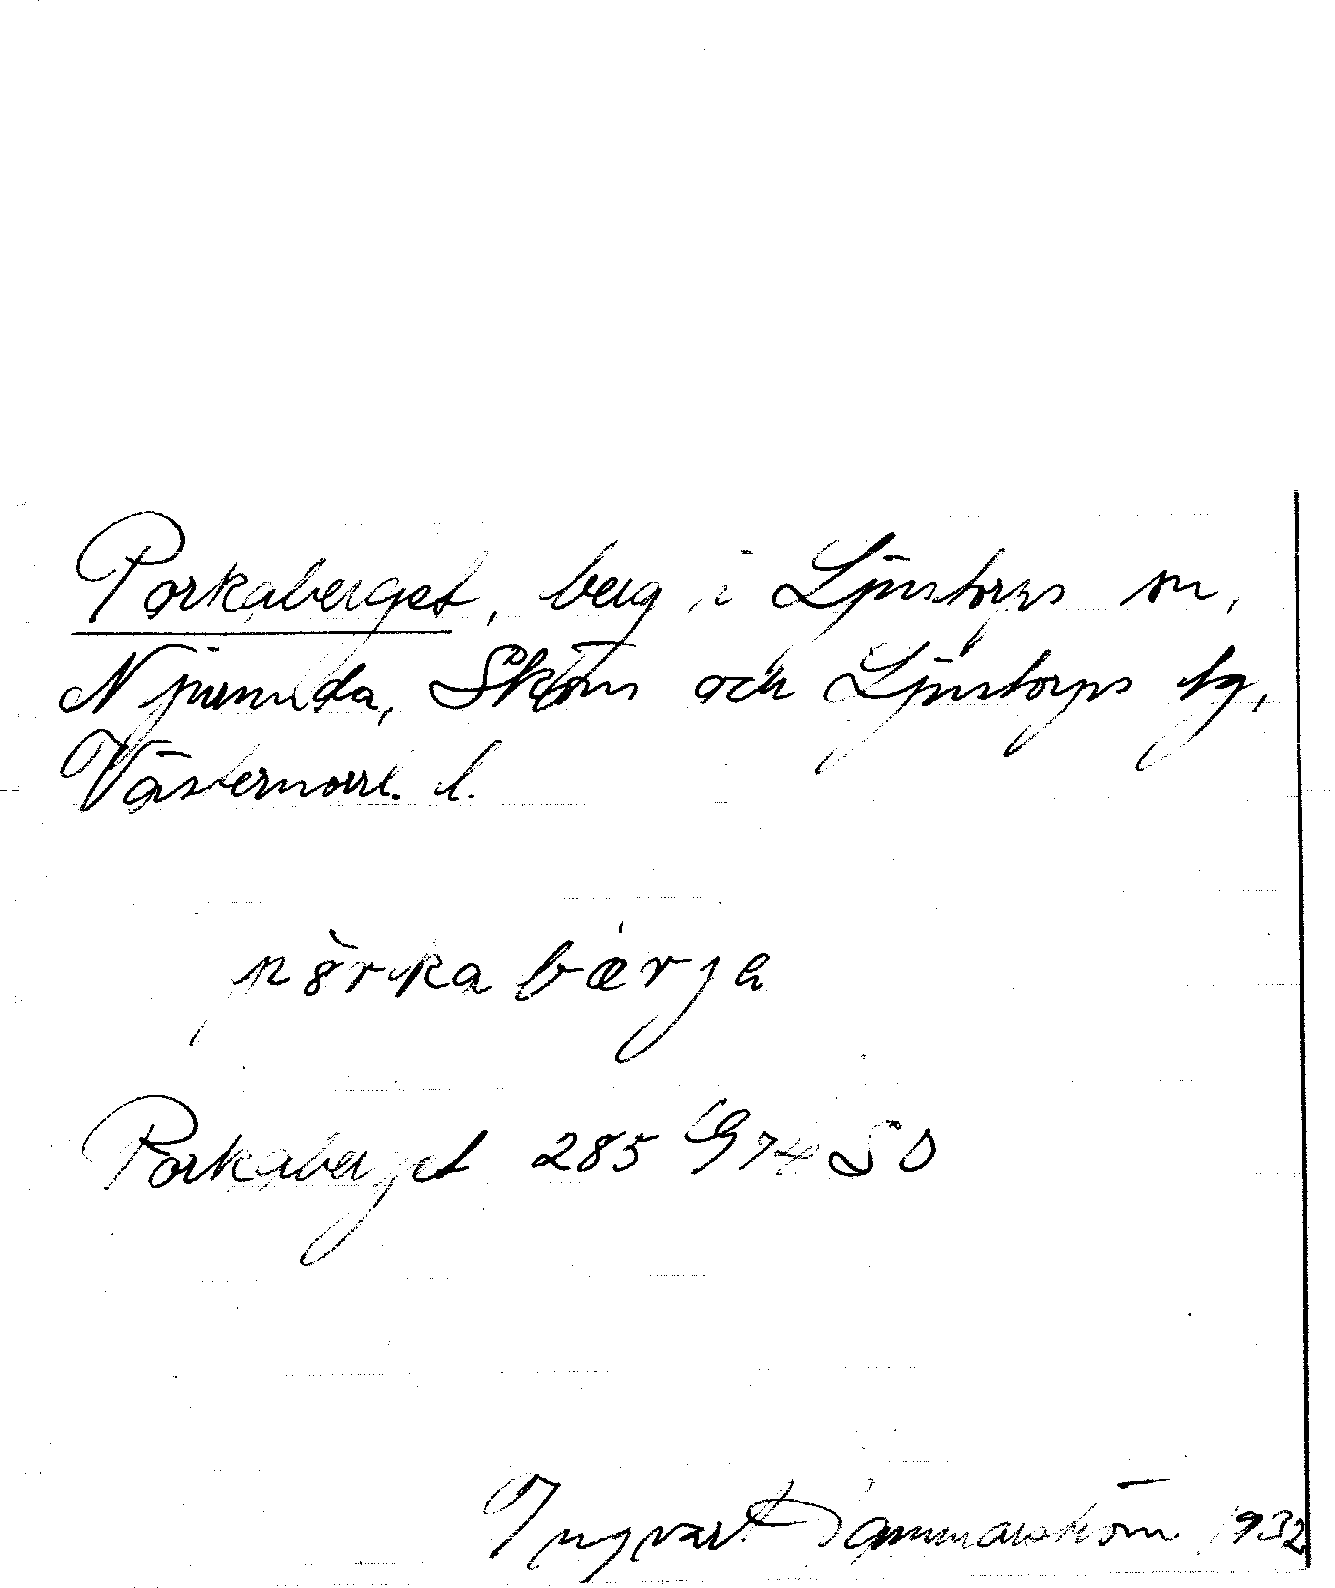 Porkaberget, berg i Ljustorps sn,
Njurunda, Sköns och Ljustorps tg,
Västernorrl. l.
pörkabærja
Porkaberget 285 G74 SO
Ingvart 1932